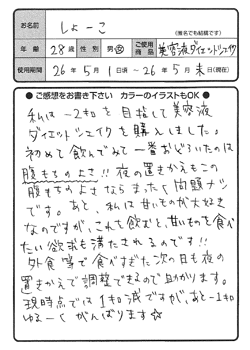 お名前 しょーこ
(匿名でも結構です)
年齢 28歳 性別 男・女 ご使用商品 美容液ダイエットシェイク
使用期間 26年5月1日頃~26年5月末日(現在)
●ご感想をお書き下さい カラーのイラストもOK●
私は-2キロを目指して美容液
ダイエットシェイクを購入しました。
初めて飲んでみて一番おどろいたのは
腹もちのよさ!!夜の置きかえもこの
腹もちのよさならまったく問題ナシ
です。あと、私は甘いものが大好き
なのですが、これを飲むと、甘いものを食べ
たい欲求も満たされるのです!!
外食等で食べすぎた次の日も夜の
置きかえで調整できるので助かります。
現時点では1キロ減ですが、あと-1キロ
ゆるーくがんばります☆